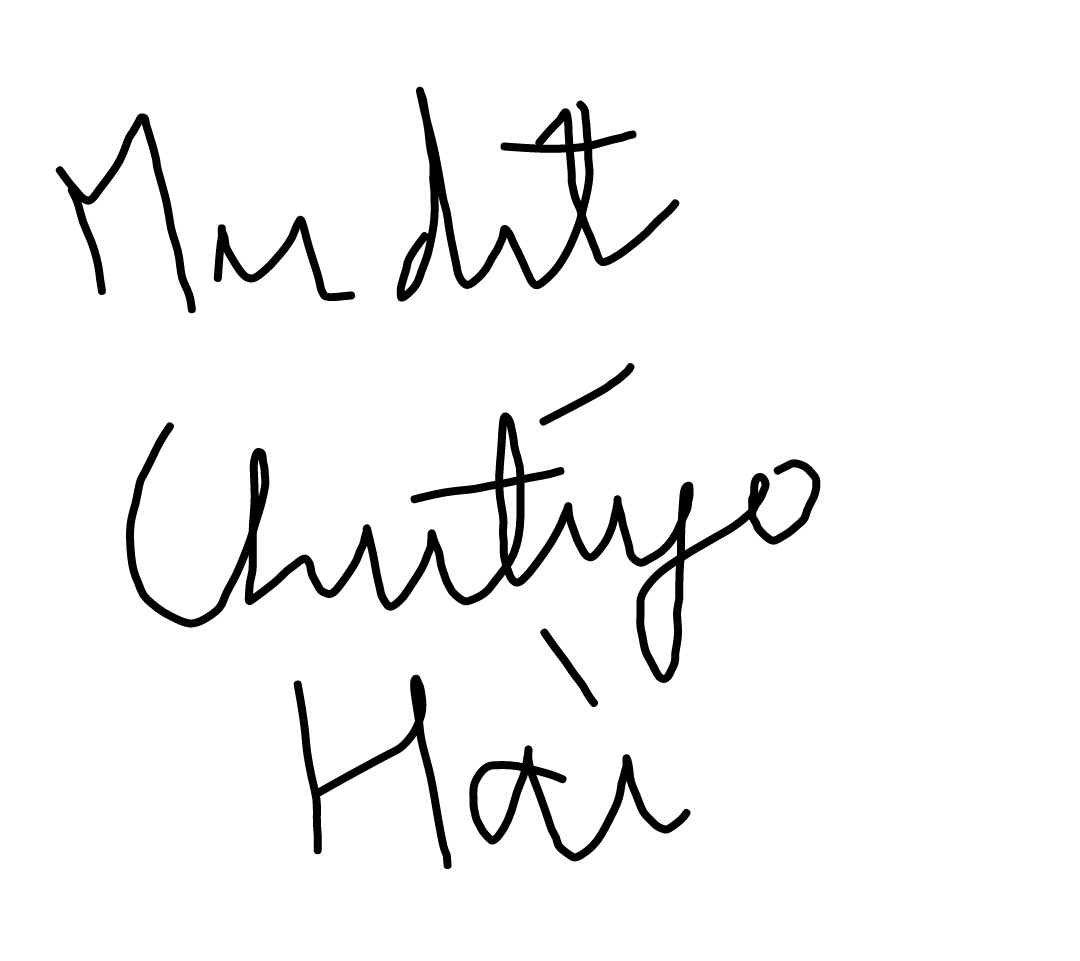 Mudit
Chutiya
Hai